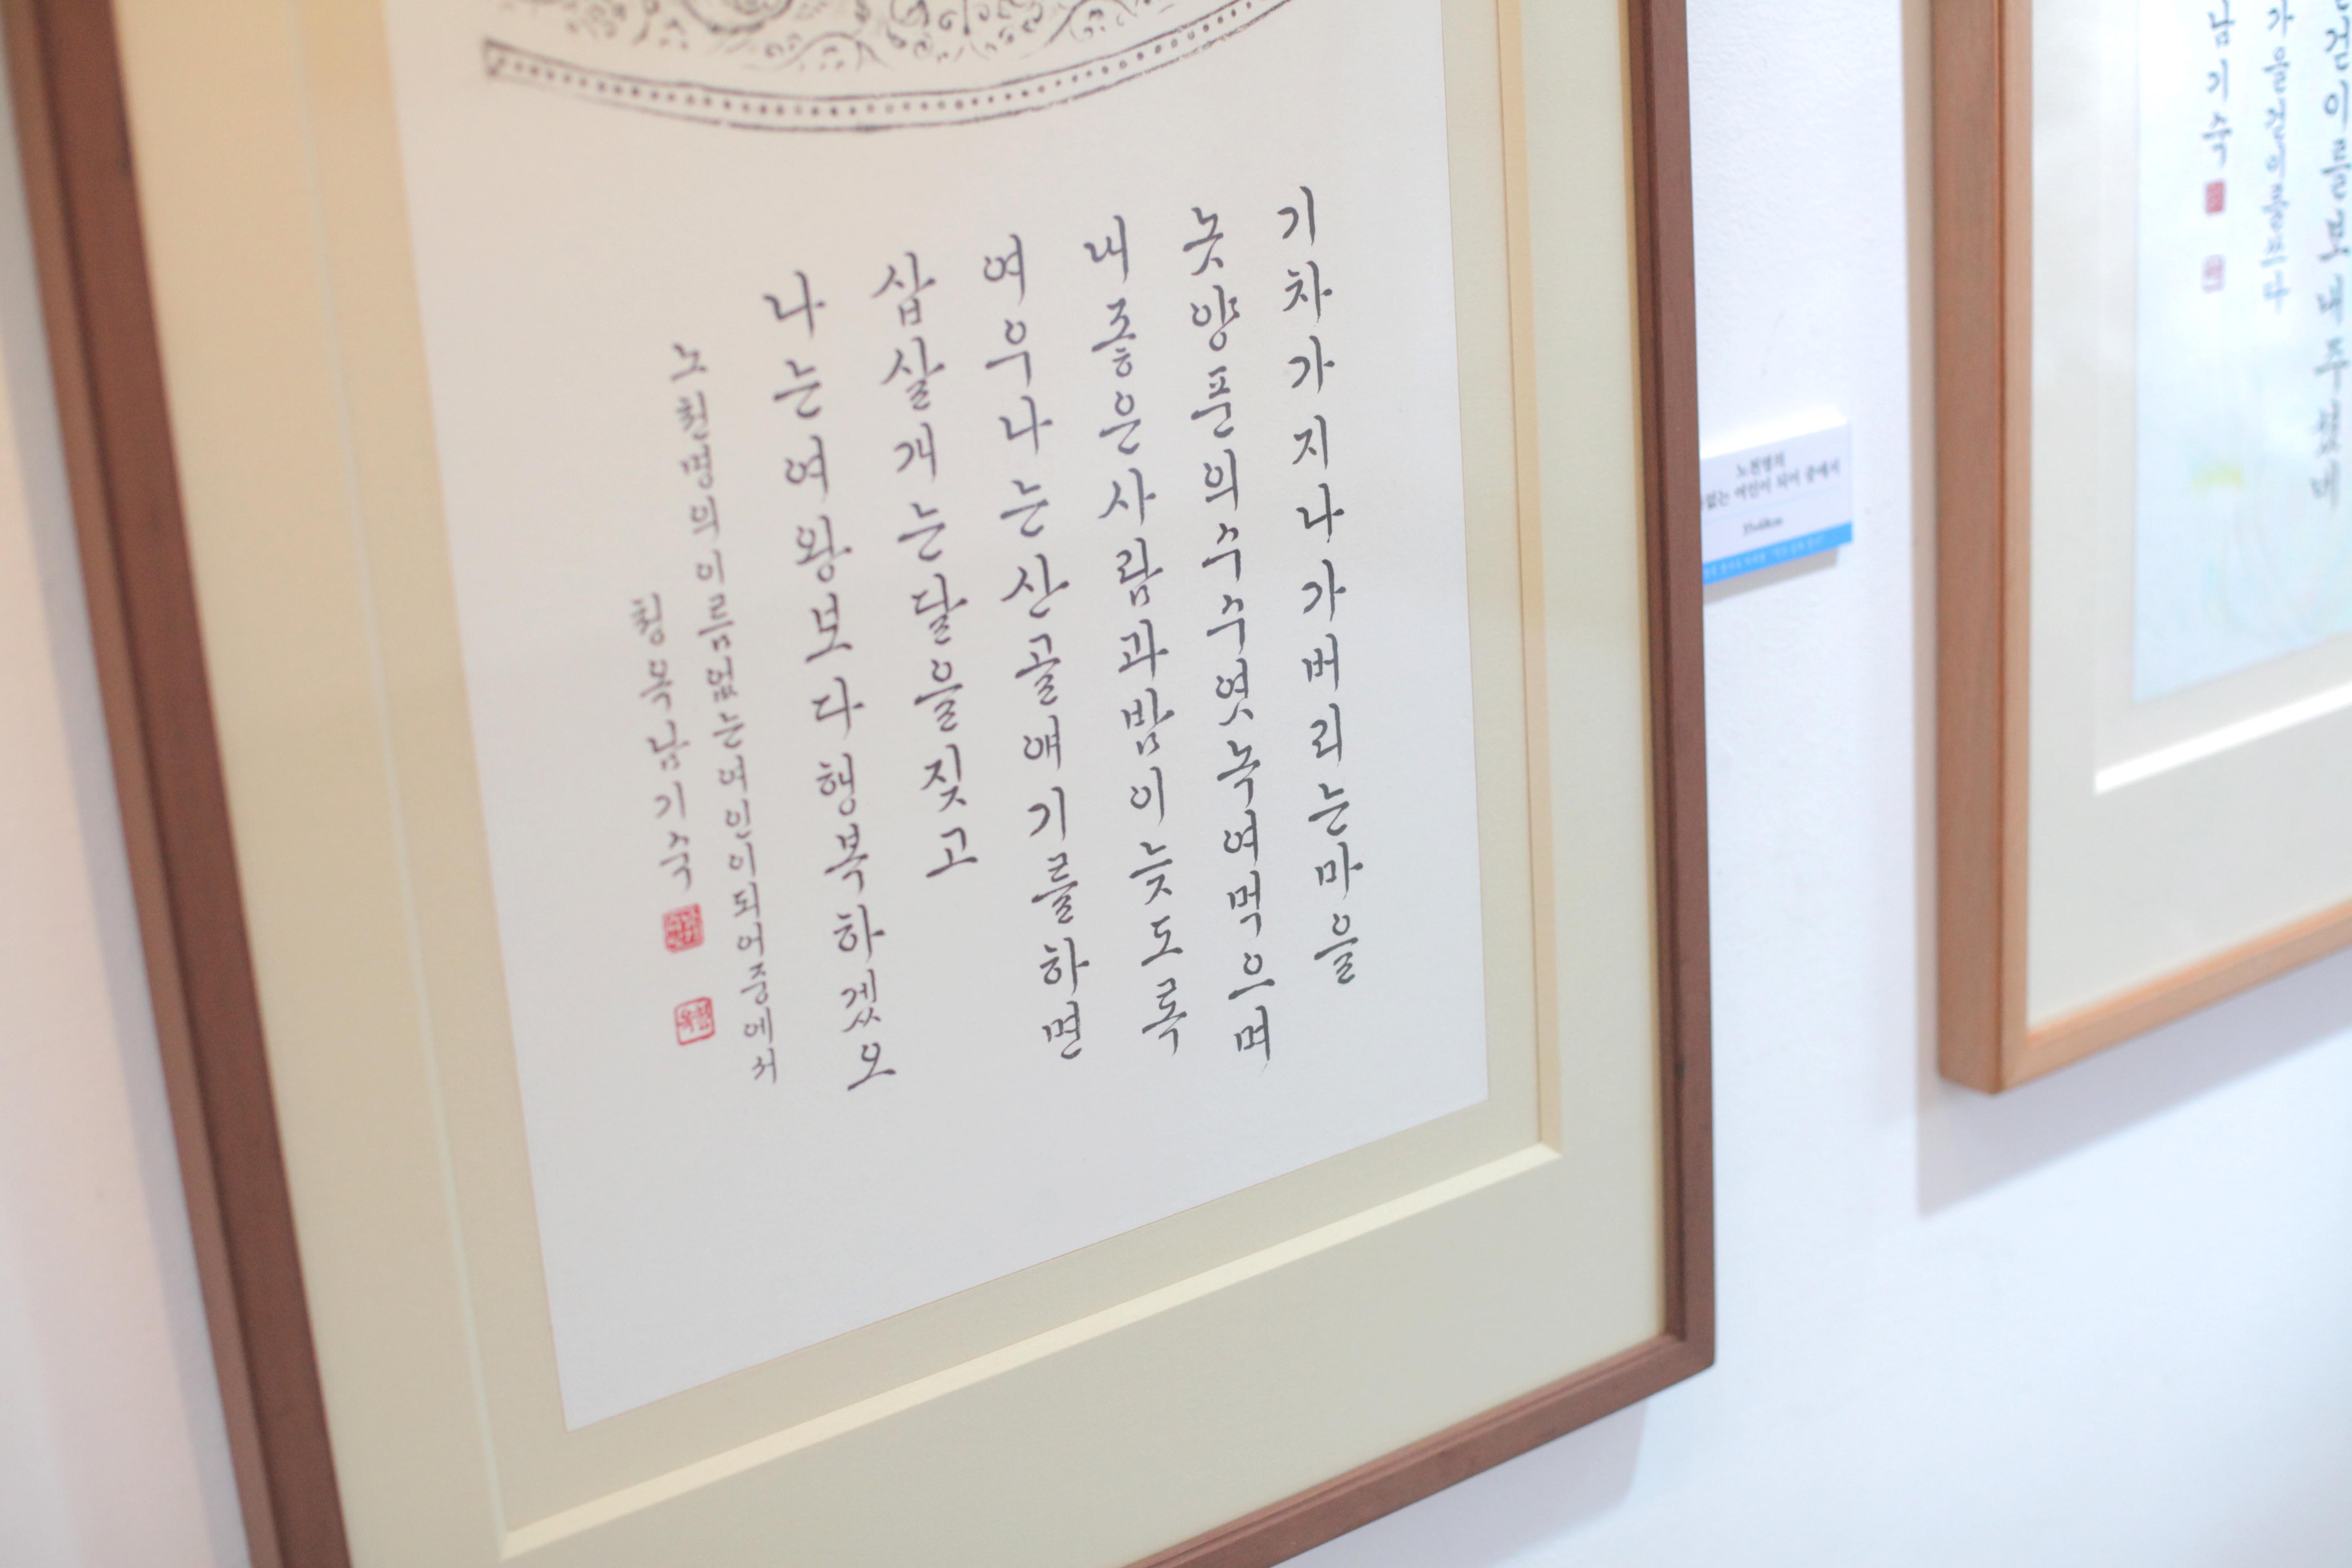 기차가지나가버리는마을
놋양푼의수수엿녹여먹으며
내좋은사람과밤이늦도록
여우나는산골얘기를하면
삽살개는달을짖고
나는여왕보다행복하겠오
노천명의이름없는여인이되어중에서
청옥남기숙
노천명의
없는 여인이 되어 중에서
남기숙